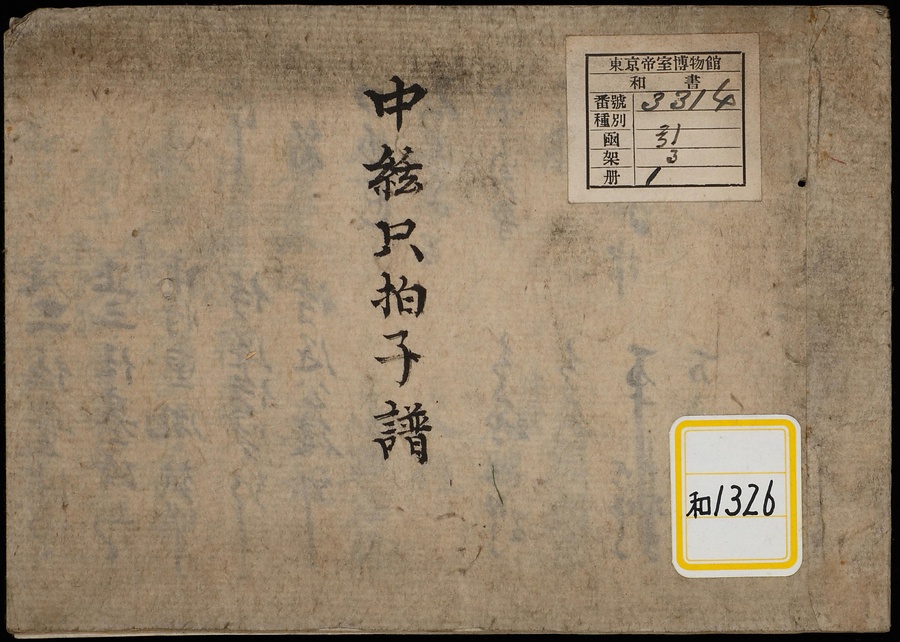 東京帝室博物館
和書
番號 3314
種別
函 31
架 3
册 1
中絃只拍子譜
和1326